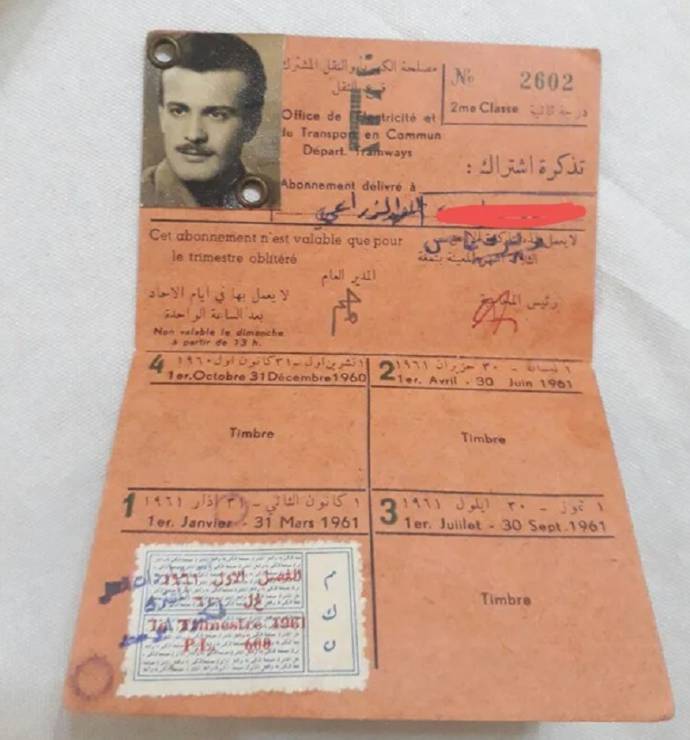 مصلحة الكهرباء والنقل المشترك
فرع النقل
Office de l'Electricité et
du Transport en Commun
Départ. Tramways
No 2602
2me Classe درجة ثانية
تذكرة اشتراك :
Abonnement délivré à
Cet abonnement n'est valable que pour
le trimestre oblitéré
لا يعمل بهذه التذكرة الا عن
المدير العام
رئيس
لا يعمل بها في أيام الاحاد
بعد الساعة الواحدة
Non valable le dimanche
à partir de 13 h.
4 ١ تشرين اول - ٣١ كانون اول ١٩٦٠
1er. Octobre 31 Décembre 1960
Timbre
2 ١ نيسان - ٣٠ حزيران ١٩٦١
1er. Avril - 30 Juin 1961
Timbre
1 ١ كانون الثاني - ٣١ اذار ١٩٦١
1er. Janvier - 31 Mars 1961
3 ١ تموز - ٣٠ ايلول ١٩٦١
1er. Juillet - 30 Sept. 1961
Timbre
الفصل الاول ١٩٦١
1er Trimestre 1961
P.L. 600
م
ك
ن